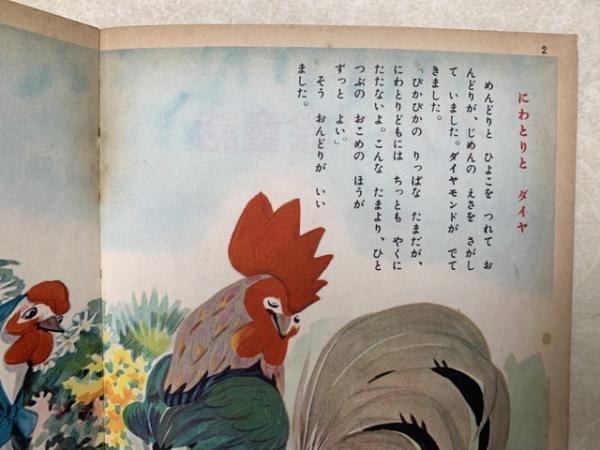 2
にわとりと ダイヤ
めんどりと ひよこを つれて お
んどりが、じめんの えさを さがし
て いました。ダイヤモンドが でて
きました。
「ぴかぴかの りっぱな たまだが、
にわとりどもには ちっとも やくに
たたないよ。こんな たまより、ひと
つぶの おこめの ほうが
ずっと よい。」
そう おんどりが いい
ました。